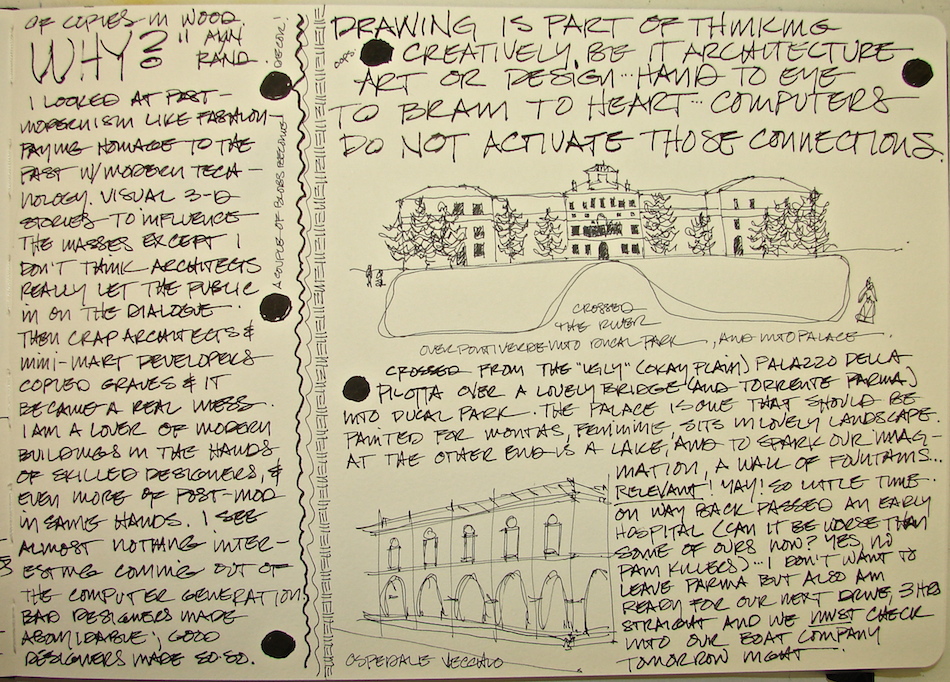 OF COPIES IN WOOD.
WHY? " ANN
RAND.
I LOOKED AT POST-
MODERNISM LIKE FASHION-
PAYING HOMAGE TO THE
PAST W/MODERN TECH-
NOLOGY. VISUAL 3-D
STORIES TO INFLUENCE
THE MASSES EXCEPT I
DON'T THINK ARCHITECTS
REALLY LET THE PUBLIC
IN ON THE DIALOGUE.
THEN CRAP ARCHITECTS &
MINI-MART DEVELOPERS
COPIED GRAVES & IT
BECAME A REAL MESS.
I AM A LOVER OF MODERN
BUILDINGS IN THE HANDS
OF SKILLED DESIGNERS, &
EVEN MORE OF POST-MOD
IN SAME HANDS. I SEE
ALMOST NOTHING INTER-
ESTING COMING OUT OF
THE COMPUTER GENERATION.
BAD DESIGNERS MADE
ABOMIDABLE; GOOD
DESIGNERS MADE SO-SO.
A COUPLE OF BLOBS BECOME
DECOR!
OOPS.
DRAWING IS PART OF THINKING
CREATIVELY, BE IT ARCHITECTURE
ART OR DESIGN... HAND TO EYE
TO BRAIN TO HEART... COMPUTERS
DO NOT ACTIVATE THOSE CONNECTIONS.
CROSSED
THE RIVER
OVER PONTI VERDE INTO DUCAL PARK, AND INTO PALACE
CROSSED FROM THE "UGLY" (OKAY PLAIN) PALAZZO DELLA
PILOTTA OVER A LOVELY BRIDGE (AND TORRENTE PARMA)
INTO DUCAL PARK. THE PALACE IS ONE THAT SHOULD BE
PAINTED FOR MONTHS, FEMININE, SITS IN LOVELY LANDSCAPE.
AT THE OTHER END IS A LAKE, AND TO SPARK OUR IMAG-
INATION, A WALL OF FOUNTAINS...
RELEVANT! YAY! SO LITTLE TIME.
ON WAY BACK PASSED AN EARLY
HOSPITAL (CAN IT BE WORSE THAN
SOME OF OURS NOW? YES, NO
PAIN KILLERS)... I DON'T WANT TO
LEAVE PARMA BUT ALSO AM
READY FOR OUR NEXT DRIVE, 3 HRS
STRAIGHT AND WE MUST CHECK
INTO OUR BOAT COMPANY
TOMORROW NIGHT.
OSPEDALE VECCHIO